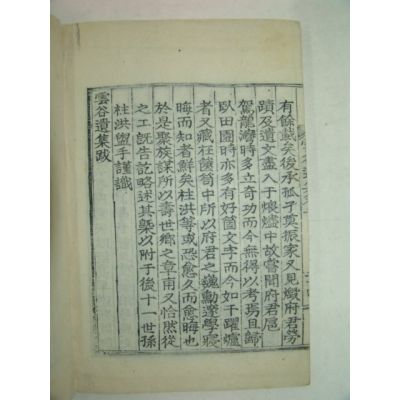 有餘載矣後承孤孑莫振家又見燬府君勞
蹟及遺文盡入于懷燼中故嘗聞府君扈
駕龍灣時多立奇功而今無得以考焉且歸
臥田園時亦多有好箇文字而今如干躍爐
者又藏在篋笥中所以府君之勳邃學寢
晦而知者鮮矣柱洪等或恐愈久而愈晦也
於是聚族謀所以壽世鄉之章甫又恰然從
之工旣告訖略述其槩以附于後十一世孫
柱洪盥手謹識
雲谷遺集跋